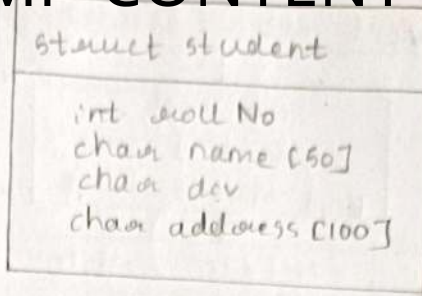 struct student
int roll No
char name [50]
char div
char address [100]